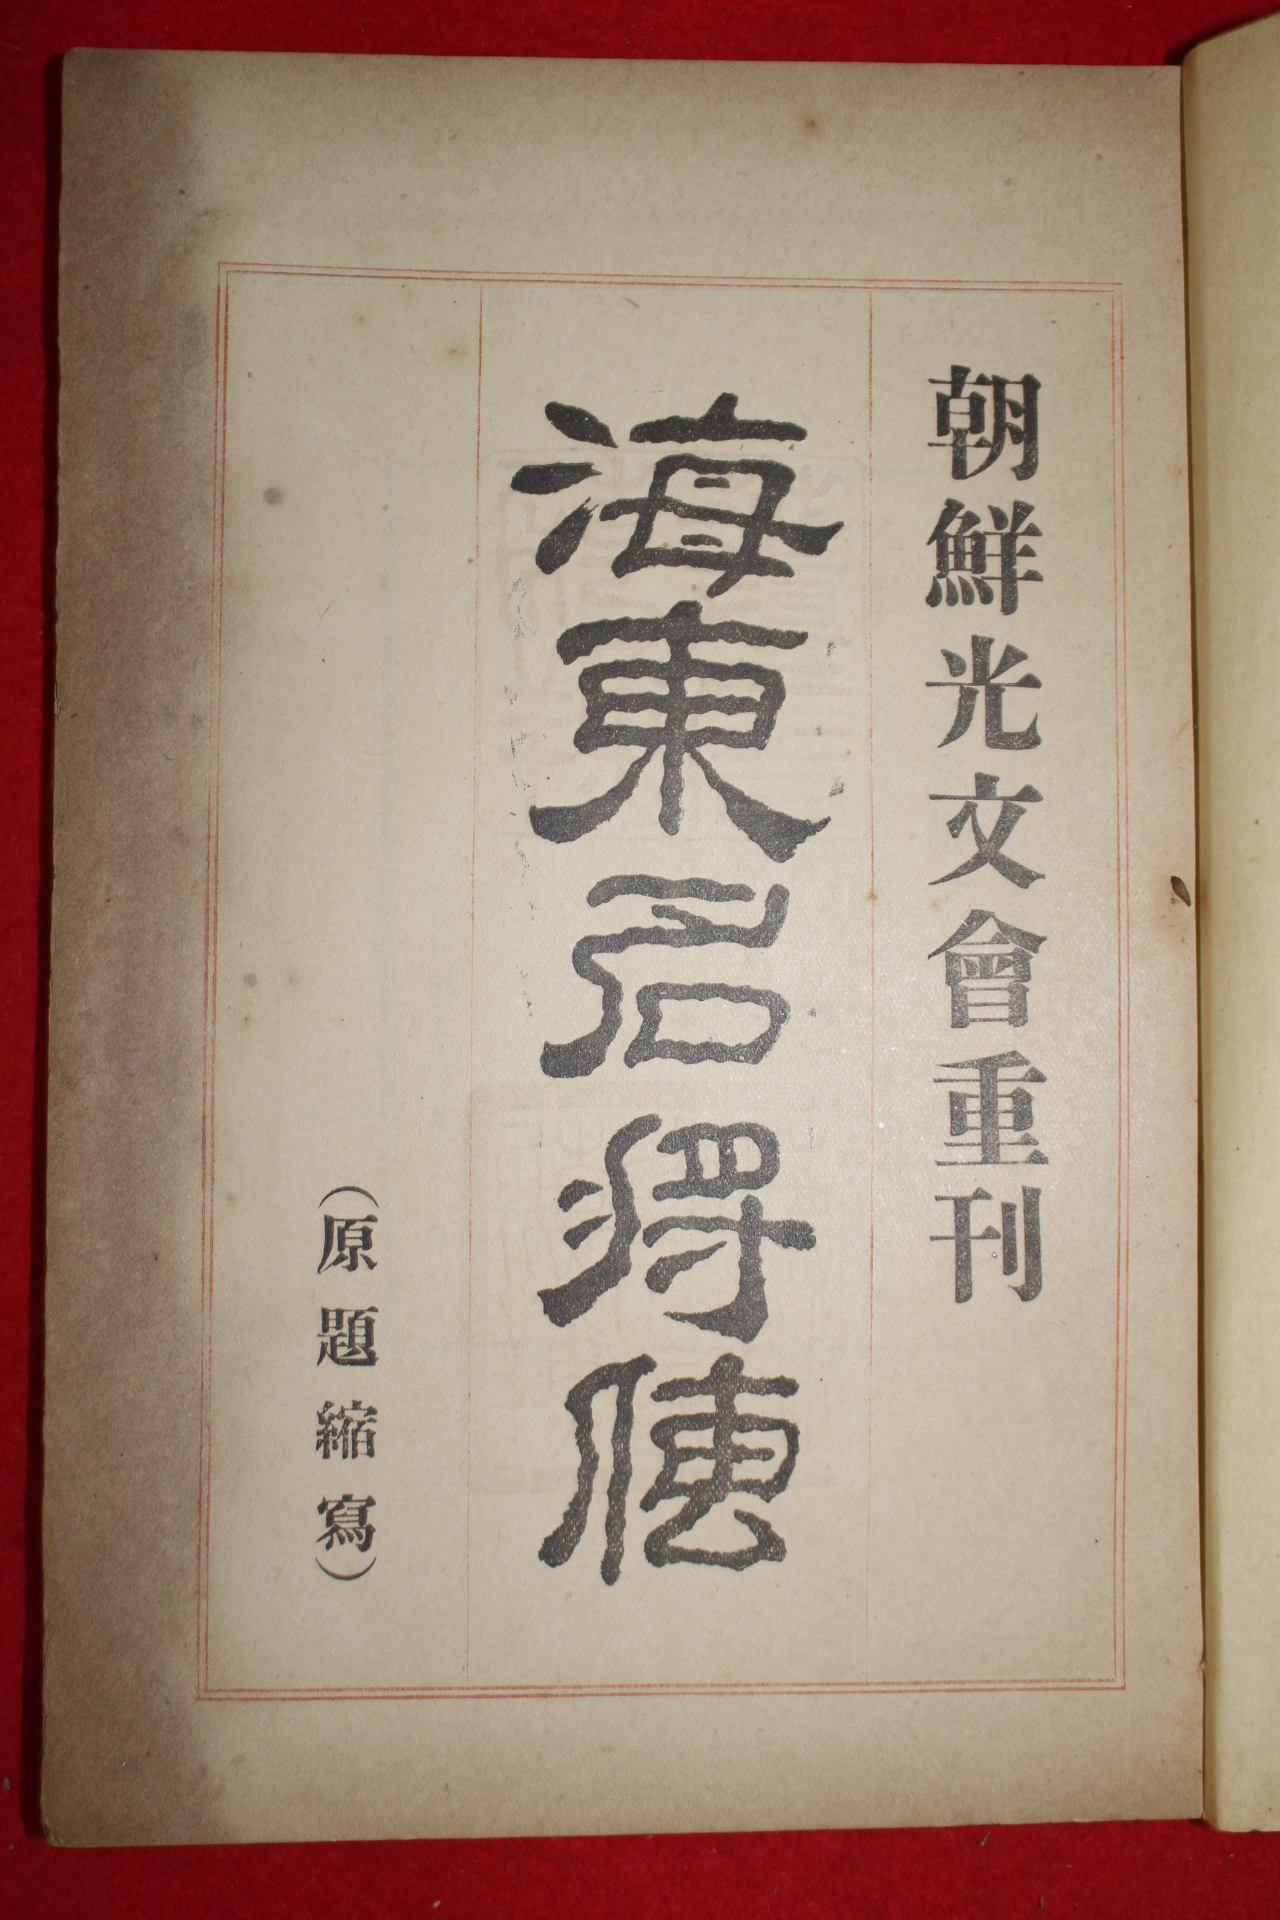 朝鮮光文會重刊
海東名將傳
(原題縮寫)